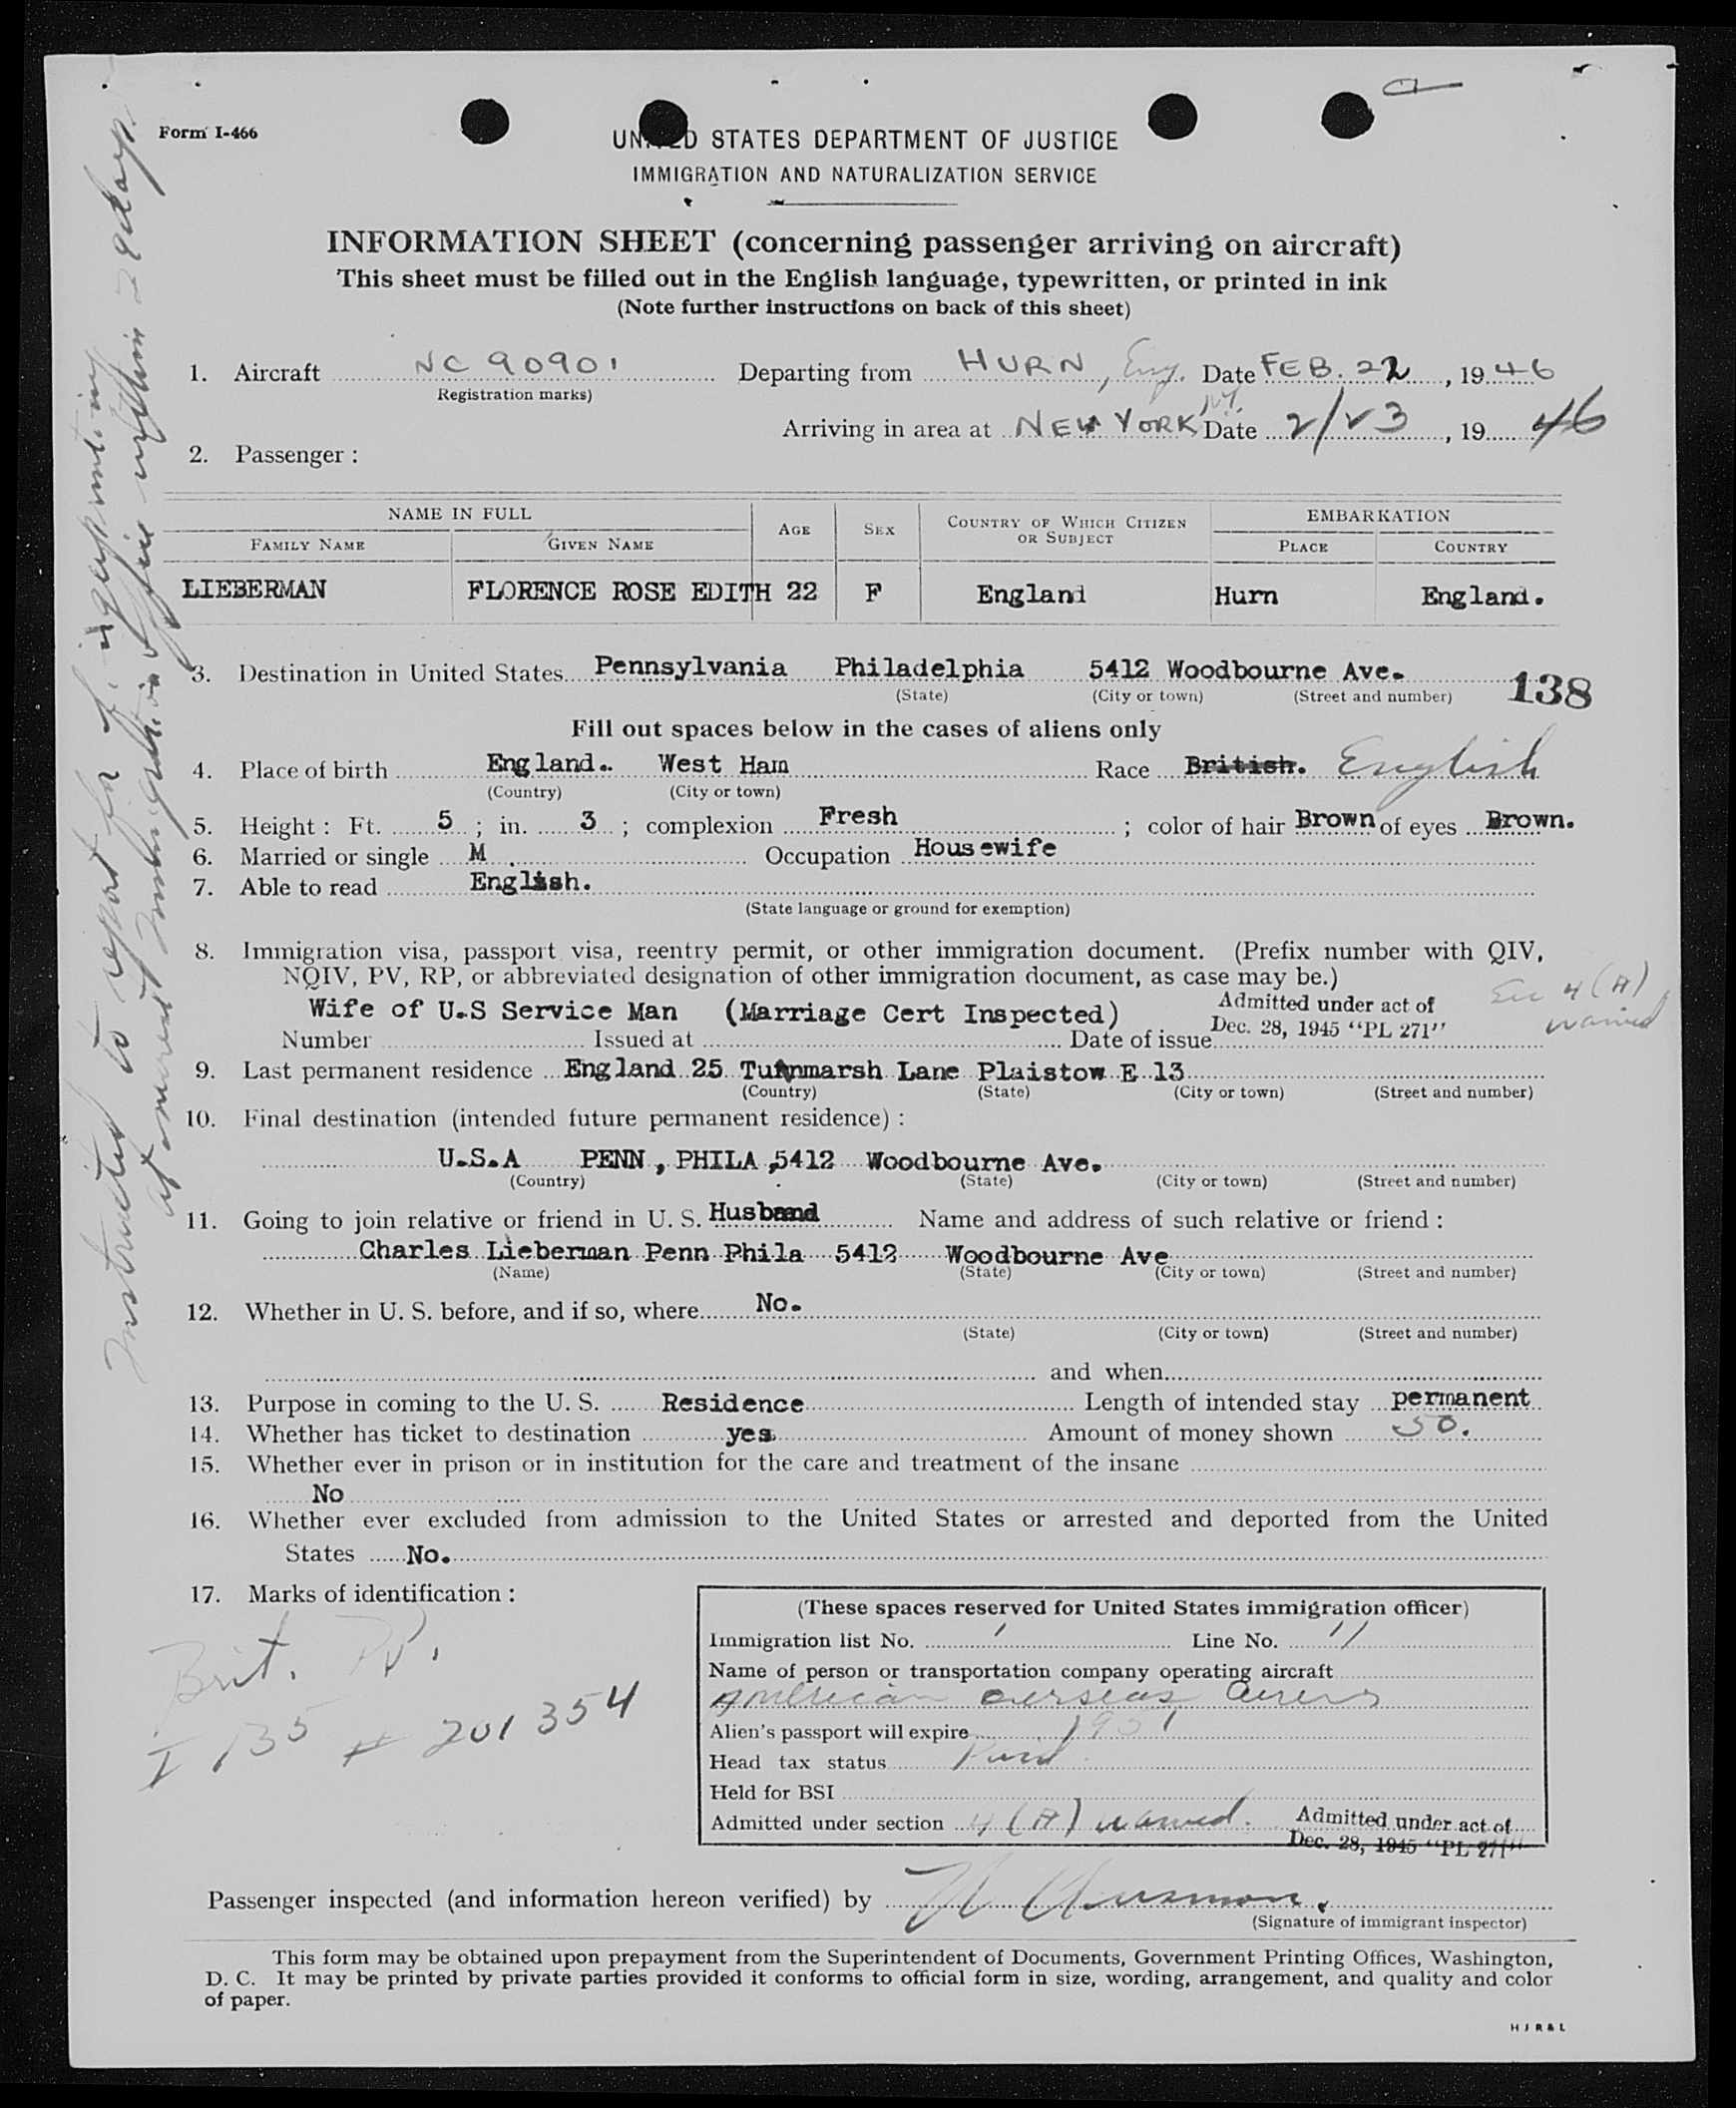 Form I-466
UNITED STATES DEPARTMENT OF JUSTICE
IMMIGRATION AND NATURALIZATION SERVICE
INFORMATION SHEET (concerning passenger arriving on aircraft)
This sheet must be filled out in the English language, typewritten, or printed in ink
(Note further instructions on back of this sheet)
1. Aircraft NC 90901 Departing from HURN, Eng. Date FEB. 22, 1946
(Registration marks)
Arriving in area at NEW YORK N.Y. Date 2/23, 19 46
2. Passenger :
NAME IN FULL AGE SEX COUNTRY OF WHICH CITIZEN OR SUBJECT EMBARKATION
FAMILY NAME GIVEN NAME PLACE COUNTRY
LIEBERMAN FLORENCE ROSE EDITH 22 F England Hurn England.
3. Destination in United States Pennsylvania Philadelphia 5412 Woodbourne Ave. 138
(State) (City or town) (Street and number)
Fill out spaces below in the cases of aliens only
4. Place of birth England.. West Ham Race British. English
(Country) (City or town)
5. Height : Ft. 5 ; in. 3 ; complexion Fresh ; color of hair Brown of eyes Brown.
6. Married or single M . Occupation Housewife
7. Able to read English.
(State language or ground for exemption)
8. Immigration visa, passport visa, reentry permit, or other immigration document. (Prefix number with QIV,
NQIV, PV, RP, or abbreviated designation of other immigration document, as case may be.)
Wife of U.S Service Man (Marriage Cert Inspected) Admitted under act of Dec. 28, 1945 "PL 271" Sec 4 (A) waived
Number Issued at Date of issue
9. Last permanent residence England 25 Tunmarsh Lane Plaistow E 13
(Country) (State) (City or town) (Street and number)
10. Final destination (intended future permanent residence) :
U.S.A PENN , PHILA ,5412 Woodbourne Ave.
(Country) (State) (City or town) (Street and number)
11. Going to join relative or friend in U. S. Husband Name and address of such relative or friend :
Charles Lieberman Penn Phila 5412 Woodbourne Ave
(Name) (State) (City or town) (Street and number)
12. Whether in U. S. before, and if so, where No.
(State) (City or town) (Street and number)
and when
13. Purpose in coming to the U. S. Residence Length of intended stay permanent
14. Whether has ticket to destination yes Amount of money shown 50.
15. Whether ever in prison or in institution for the care and treatment of the insane
No
16. Whether ever excluded from admission to the United States or arrested and deported from the United
States No.
17. Marks of identification :
Brit. PV.
I 135 # 201354
(These spaces reserved for United States immigration officer)
Immigration list No. 1 Line No. 11
Name of person or transportation company operating aircraft
American Overseas
Alien's passport will expire 1951
Head tax status Paid
Held for BSI
Admitted under section 4 (A) waived. Admitted under act of
Dec. 28, 1945 "PL 271"
Passenger inspected (and information hereon verified) by
(Signature of immigrant inspector)
This form may be obtained upon prepayment from the Superintendent of Documents, Government Printing Offices, Washington,
D. C. It may be printed by private parties provided it conforms to official form in size, wording, arrangement, and quality and color
of paper.
H J R & L
Instructed to report for fingerprinting
at nearest Immigration Office within 29 days.